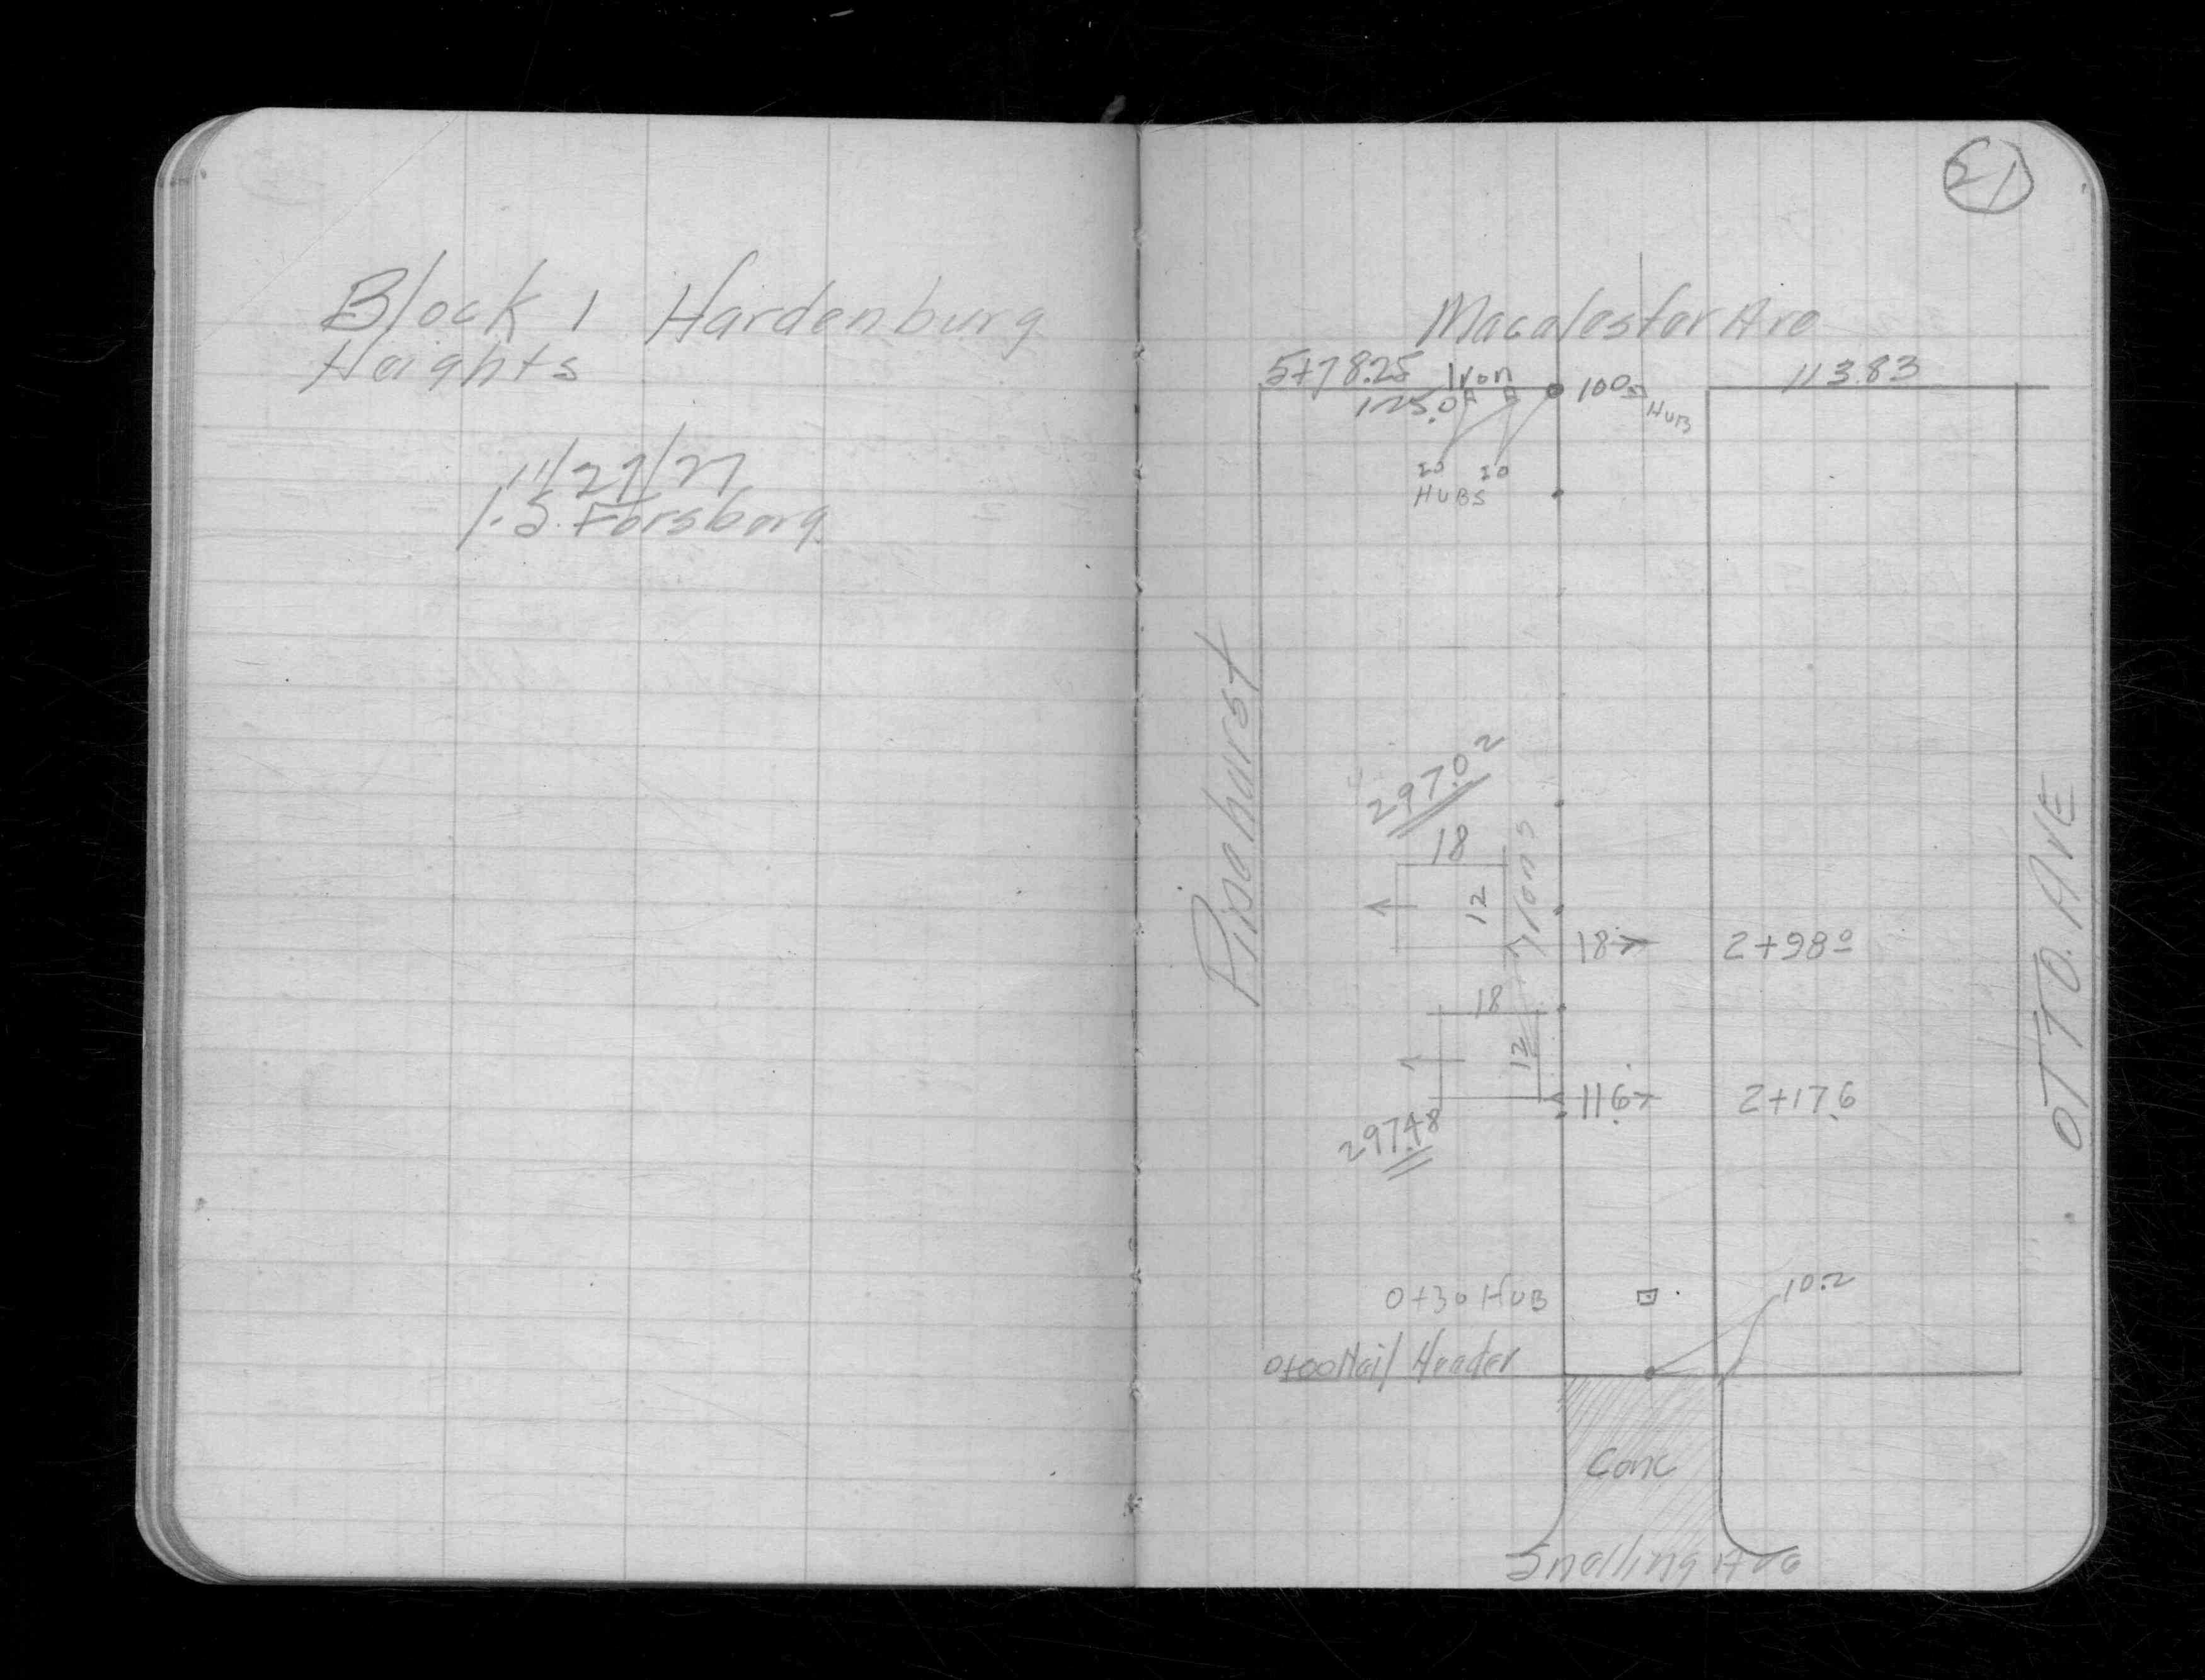 Block 1 Hardenburg
Heights
11/27/27
Forsberg
21
Macalester Ave
5+78.25 Iron 113.83
125.0 100 HUB
20 20
HUBS
Pinehurst
297.02
18
12 Irons
18 2+98.0
18
12
11.6 2+17.6
297.48
OTTO. AVE
0+30 HUB
10.2
0+00 Nail Header
Conc
Snelling Ave